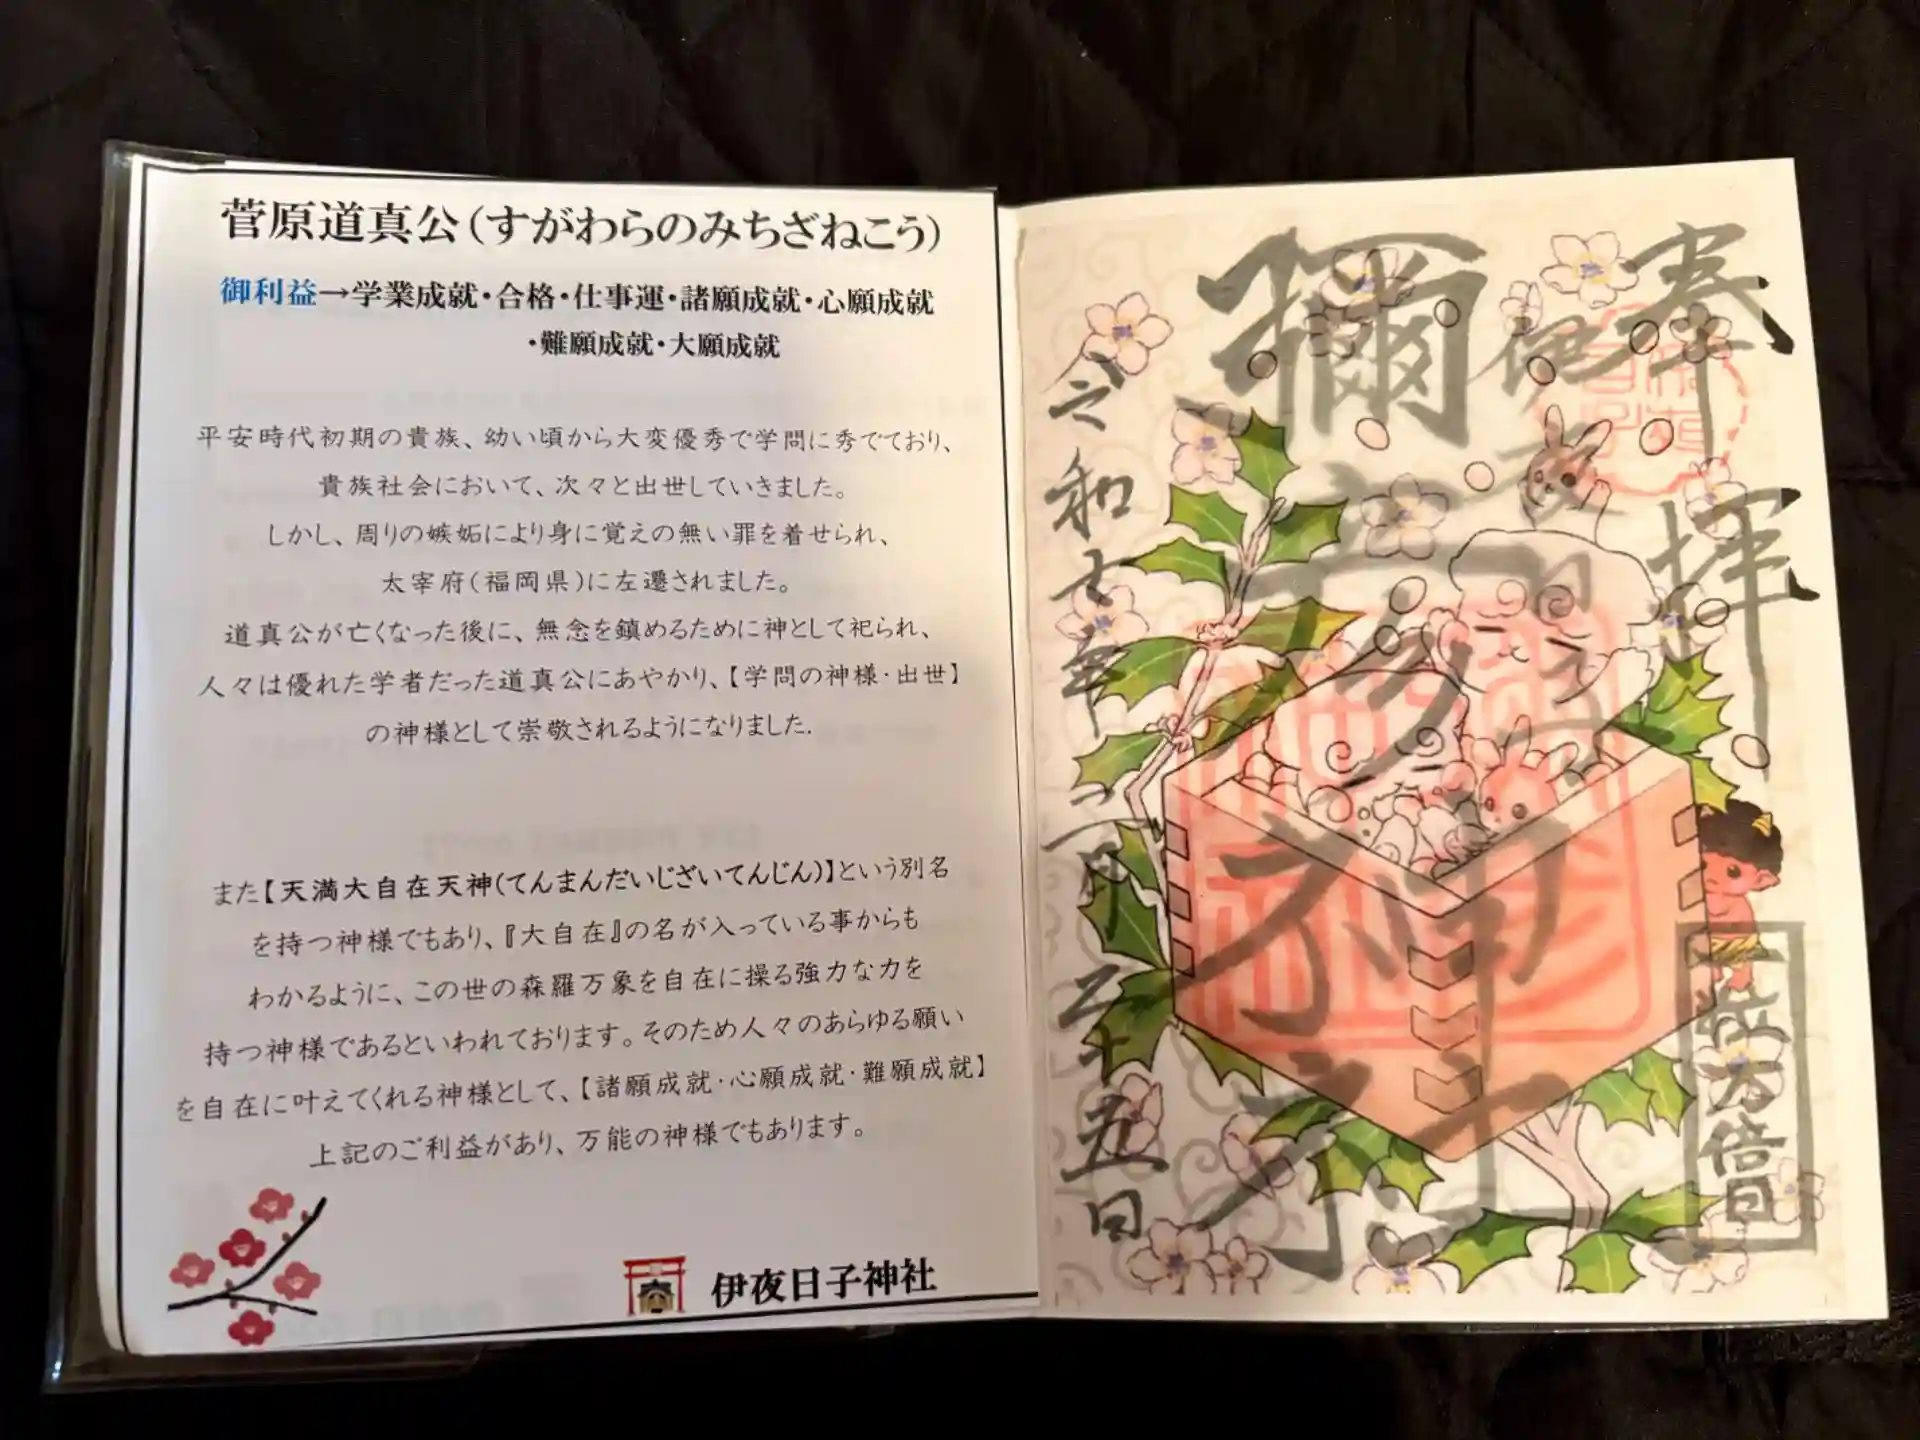 菅原道真公(すがわらのみちざねこう)
御利益→学業成就・合格・仕事運・諸願成就・心願成就
・難願成就・大願成就
平安時代初期の貴族、幼い頃から大変優秀で学問に秀でており、
貴族社会において、次々と出世していきました。
しかし、周りの嫉妬により身に覚えの無い罪を着せられ、
太宰府(福岡県)に左遷されました。
道真公が亡くなった後に、無念を鎮めるために神として祀られ、
人々は優れた学者だった道真公にあやかり、【学問の神様・出世】
の神様として崇敬されるようになりました.
また【天満大自在天神(てんまんだいじざいてんじん)】という別名
を持つ神様でもあり、『大自在』の名が入っている事からも
わかるように、この世の森羅万象を自在に操る強力な力を
持つ神様であるといわれております。そのため人々のあらゆる願い
を自在に叶えてくれる神様として、【諸願成就・心願成就・難願成就】
上記のご利益があり、万能の神様でもあります。
伊夜日子神社
奉拝
一粒万倍日
伊夜日子
彌彦神社
令和七年一月二十五日